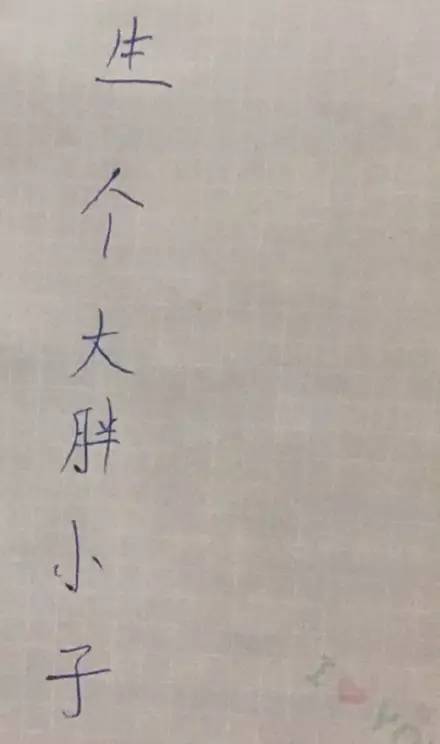 生个大胖小子
I ❤ YO